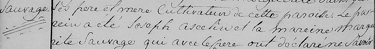 Sauvage ses père et mère Cultivateur de cette paroisse Le par
rein a été Joseph Asselin et la marreine Margue
rite Sauvage qui avec le père ont déclaré ne Savoir